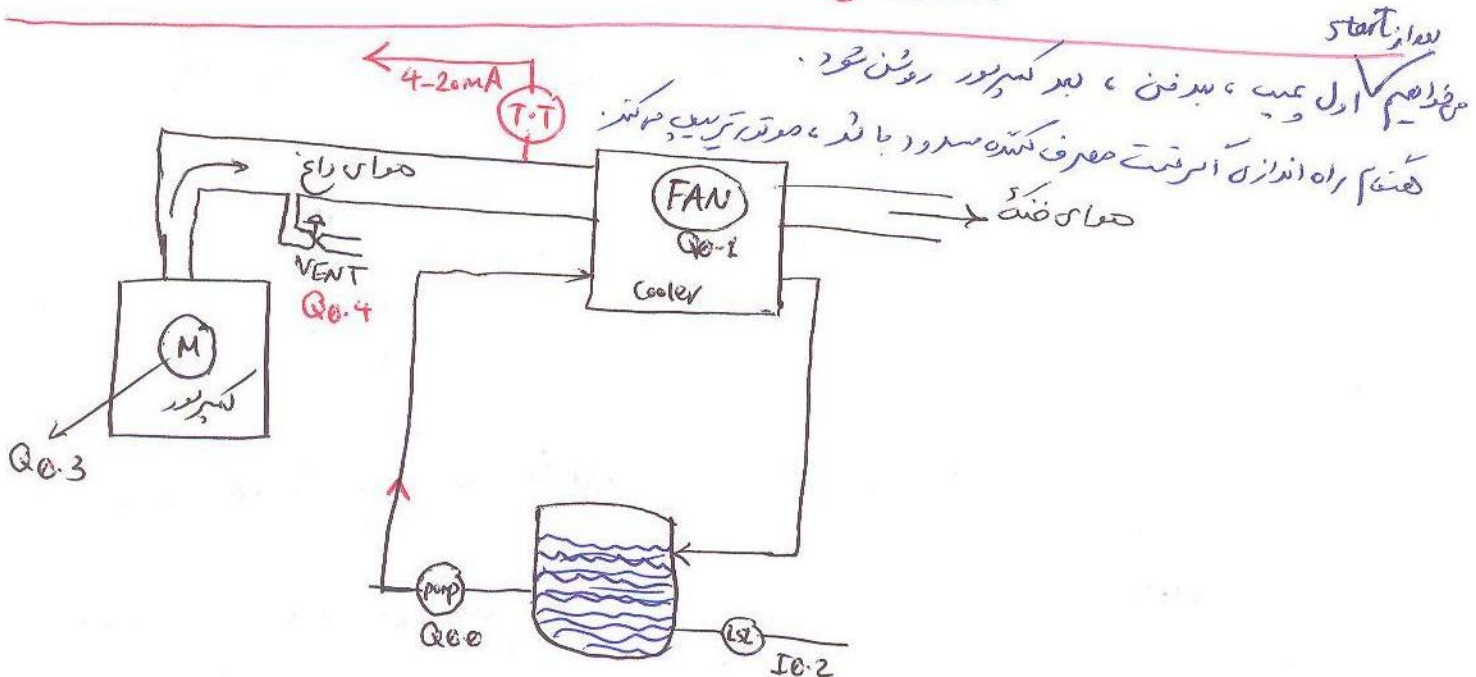 بعد از start
میخواهیم اول پمپ ، بعد فن ، بعد کمپرسور روشن شود .
هنگام راه اندازی اگر قسمت مصرف کننده مسدود باشد ، موتور تریپ میکند.
4-20mA
T.T
هوای داغ
FAN
Q0.1
cooler
هوای خنک
VENT
Q0.4
M
کمپرسور
Q0.3
pump
Q0.0
LSL
I0.2